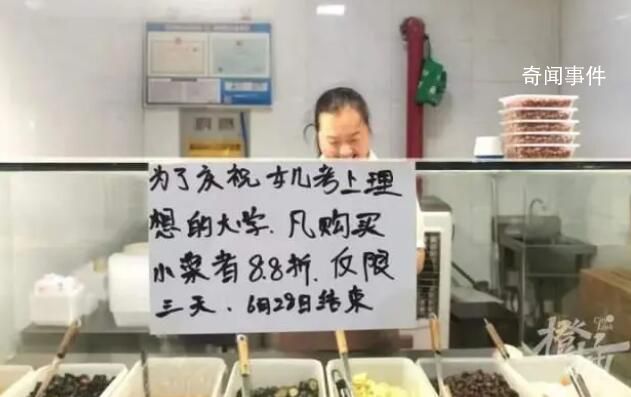 奇闻事件
为了庆祝女儿考上理
想的大学.凡购买
小菜者8.8折.仅限
三天.6月28日结束
橙市